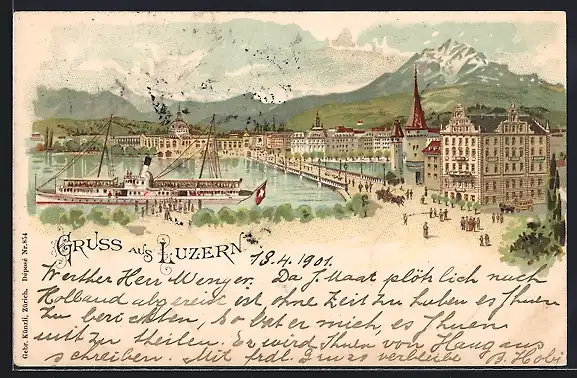 Gebr. Künzli, Zürich. Déposé Nr. 854
GRUSS AUS LUZERN
13.4.1901.
Werther Herr Wenger. Da J. Maat plötzlich nach
Holland abgereist ist, ohne Zeit zu haben es Ihnen
zu berichten, so bat er mich, es Ihnen
mit zu theilen. Er wird Ihnen von Haag aus
schreiben. Mit frdl. Gruss verbleibe B. Hobi